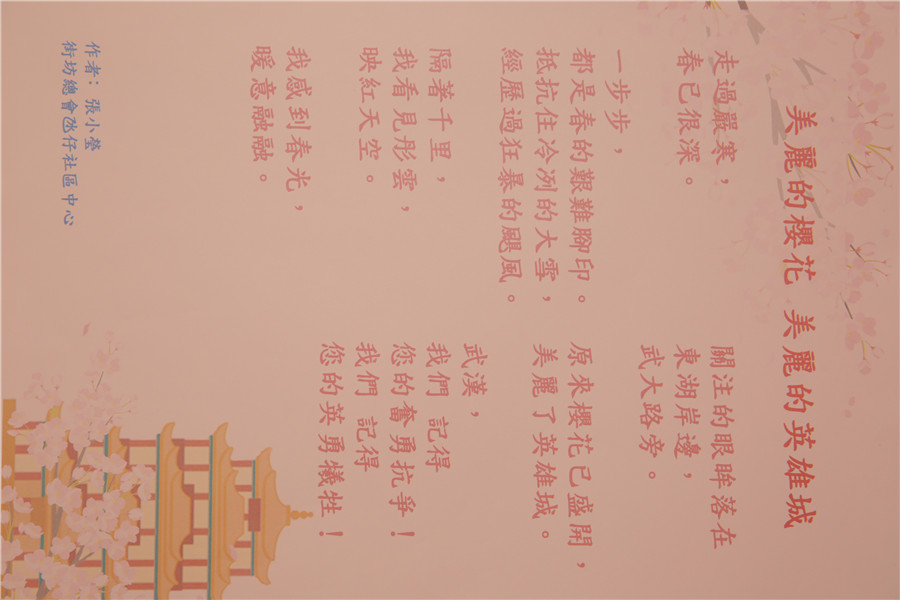 美麗的櫻花 美麗的英雄城
走過嚴寒，
春已很深。
一步步，
都是春的艱難腳印。
抵抗住冷冽的大雪，
經歷過狂暴的颶風。
隔著千里，
我看見彤雲，
映紅天空。
我感到春光，
暖意融融。
關注的眼眸落在
東湖岸邊，
武大路旁。
原來櫻花已盛開，
美麗了英雄城。
武漢，
我們 記得
您的奮勇抗爭！
我們 記得
您的英勇犧牲！
作者：張小瑩
街坊總會氹仔社區中心